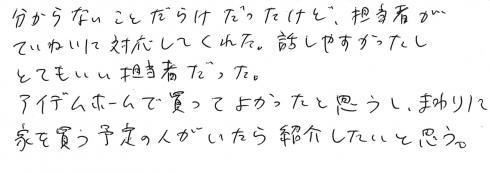 分からないことだらけだったけど、担当者が
ていねいに対応してくれた。話しやすかったし
とてもいい担当者だった。
アイデムホームで買ってよかったと思うし、まわりに
家を買う予定の人がいたら紹介したいと思う。